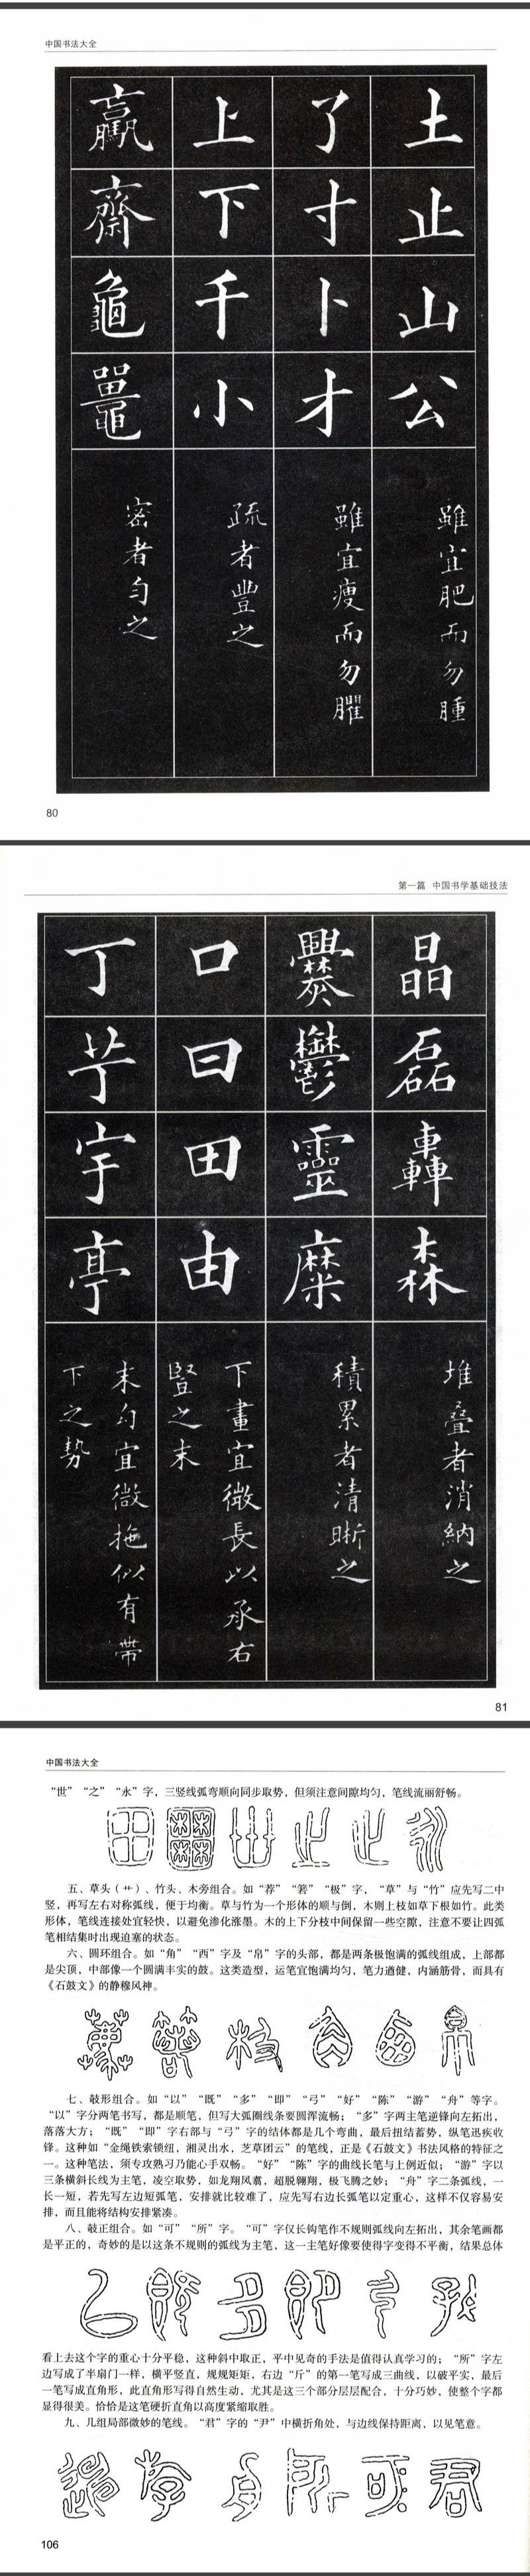 中国书法大全
土止山公
雖宜肥而勿腫
了寸卜才
雖宜瘦而勿臞
上下千小
疏者豐之
羸齋龜鼉
密者匀之
80
第一篇 中国书学基础技法
晶磊轟森
堆叠者消納之
爨鬱靈糜
積累者清晰之
口曰田由
下畫宜微長以承右
豎之末
丁芋宇亭
末勾宜微拖似有帶
下之勢
81
中国书法大全
“世”“之”“永”字，三竖线弧弯顺向同步取势，但须注意间隙均匀，笔线流丽舒畅。
五、草头（艹）、竹头、木旁组合。如“荐”“箬”“极”字，“草”与“竹”应先写二中
竖，再写左右对称弧线，便于均衡。草与竹为一个形体的顺与倒，木则上枝如草下根如竹。此类
形体，笔线连接处宜轻快，以避免渗化涨墨。木的上下分枝中间保留一些空隙，注意不要让四弧
笔相结集时出现迫塞的状态。
六、圆环组合。如“角”“西”字及“帛”字的头部，都是两条极饱满的弧线组成，上部都
是尖顶，中部像一个圆满丰实的鼓。这类造型，运笔宜饱满均匀，笔力遒健，内涵筋骨，而具有
《石鼓文》的静穆风神。
七、攲形组合。如“以”“既”“多”“即”“弓”“好”“陈”“游”“舟”等字。
“以”字分两笔书写，都是顺笔，但写大弧圈线条要圆浑流畅；“多”字两主笔逆锋向左拓出，
落落大方；“既”“即”字右部与“弓”字的结体都是几个弯曲，最后扭结蓄势，纵笔迅疾收
锋。这种如“金绳铁索锁纽，湘灵出水，芝草团云”的笔线，正是《石鼓文》书法风格的特征之
一。这种笔法，须专攻熟习乃能心手双畅。“好”“陈”字的曲线长笔与上例近似；“游”字以
三条横斜长线为主笔，凌空取势，如龙翔凤翥，超脱翱翔，极飞腾之妙；“舟”字二条弧线，一
长一短，若先写左边短弧笔，安排就比较难了，应先写右边长弧笔以定重心，这样不仅容易安
排，而且能将结构安排紧凑。
八、攲正组合。如“可”“所”字。“可”字仅长钩笔作不规则弧线向左拓出，其余笔画都
是平正的，奇妙的是以这条不规则的弧线为主笔，这一主笔好像要使得字变得不平衡，结果总体
看上去这个字的重心十分平稳，这种斜中取正，平中见奇的手法是值得认真学习的；“所”字左
边写成了半扇门一样，横平竖直，规规矩矩，右边“斤”的第一笔写成三曲线，以破平实，最后
一笔写成直角形，此直角形写得自然生动，尤其是这三个部分层层配合，十分巧妙，使整个字都
显得很美。恰恰是这笔硬折直角以高度紧缩取胜。
九、几组局部微妙的笔线。“君”字的“尹”中横折角处，与边线保持距离，以见笔意。
106